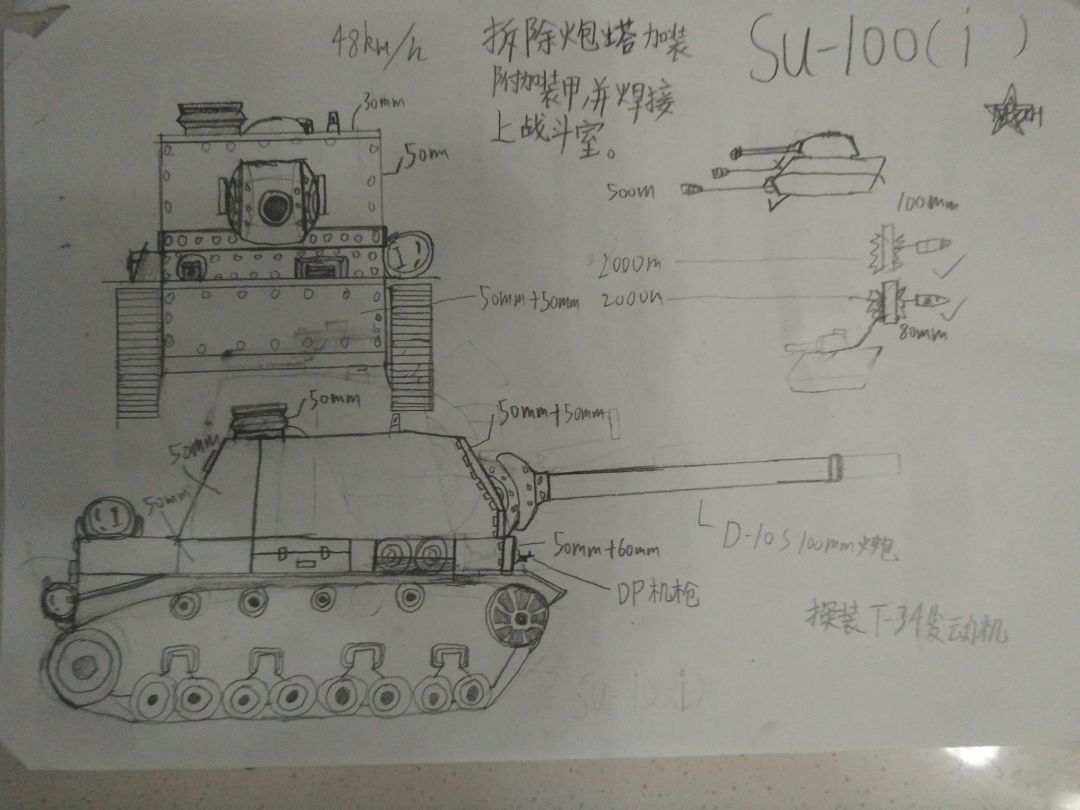 48km/h
拆除炮塔加装
附加装甲,并焊接
上战斗室。
Su-100(i)
30mm
50mm
500m
100mm
2000m
50mm+50mm
2000m
80mm
50mm
50mm+50mm
50mm
50mm
50mm+60mm
D-10S 100mm火炮
DP机枪
换装T-34发动机